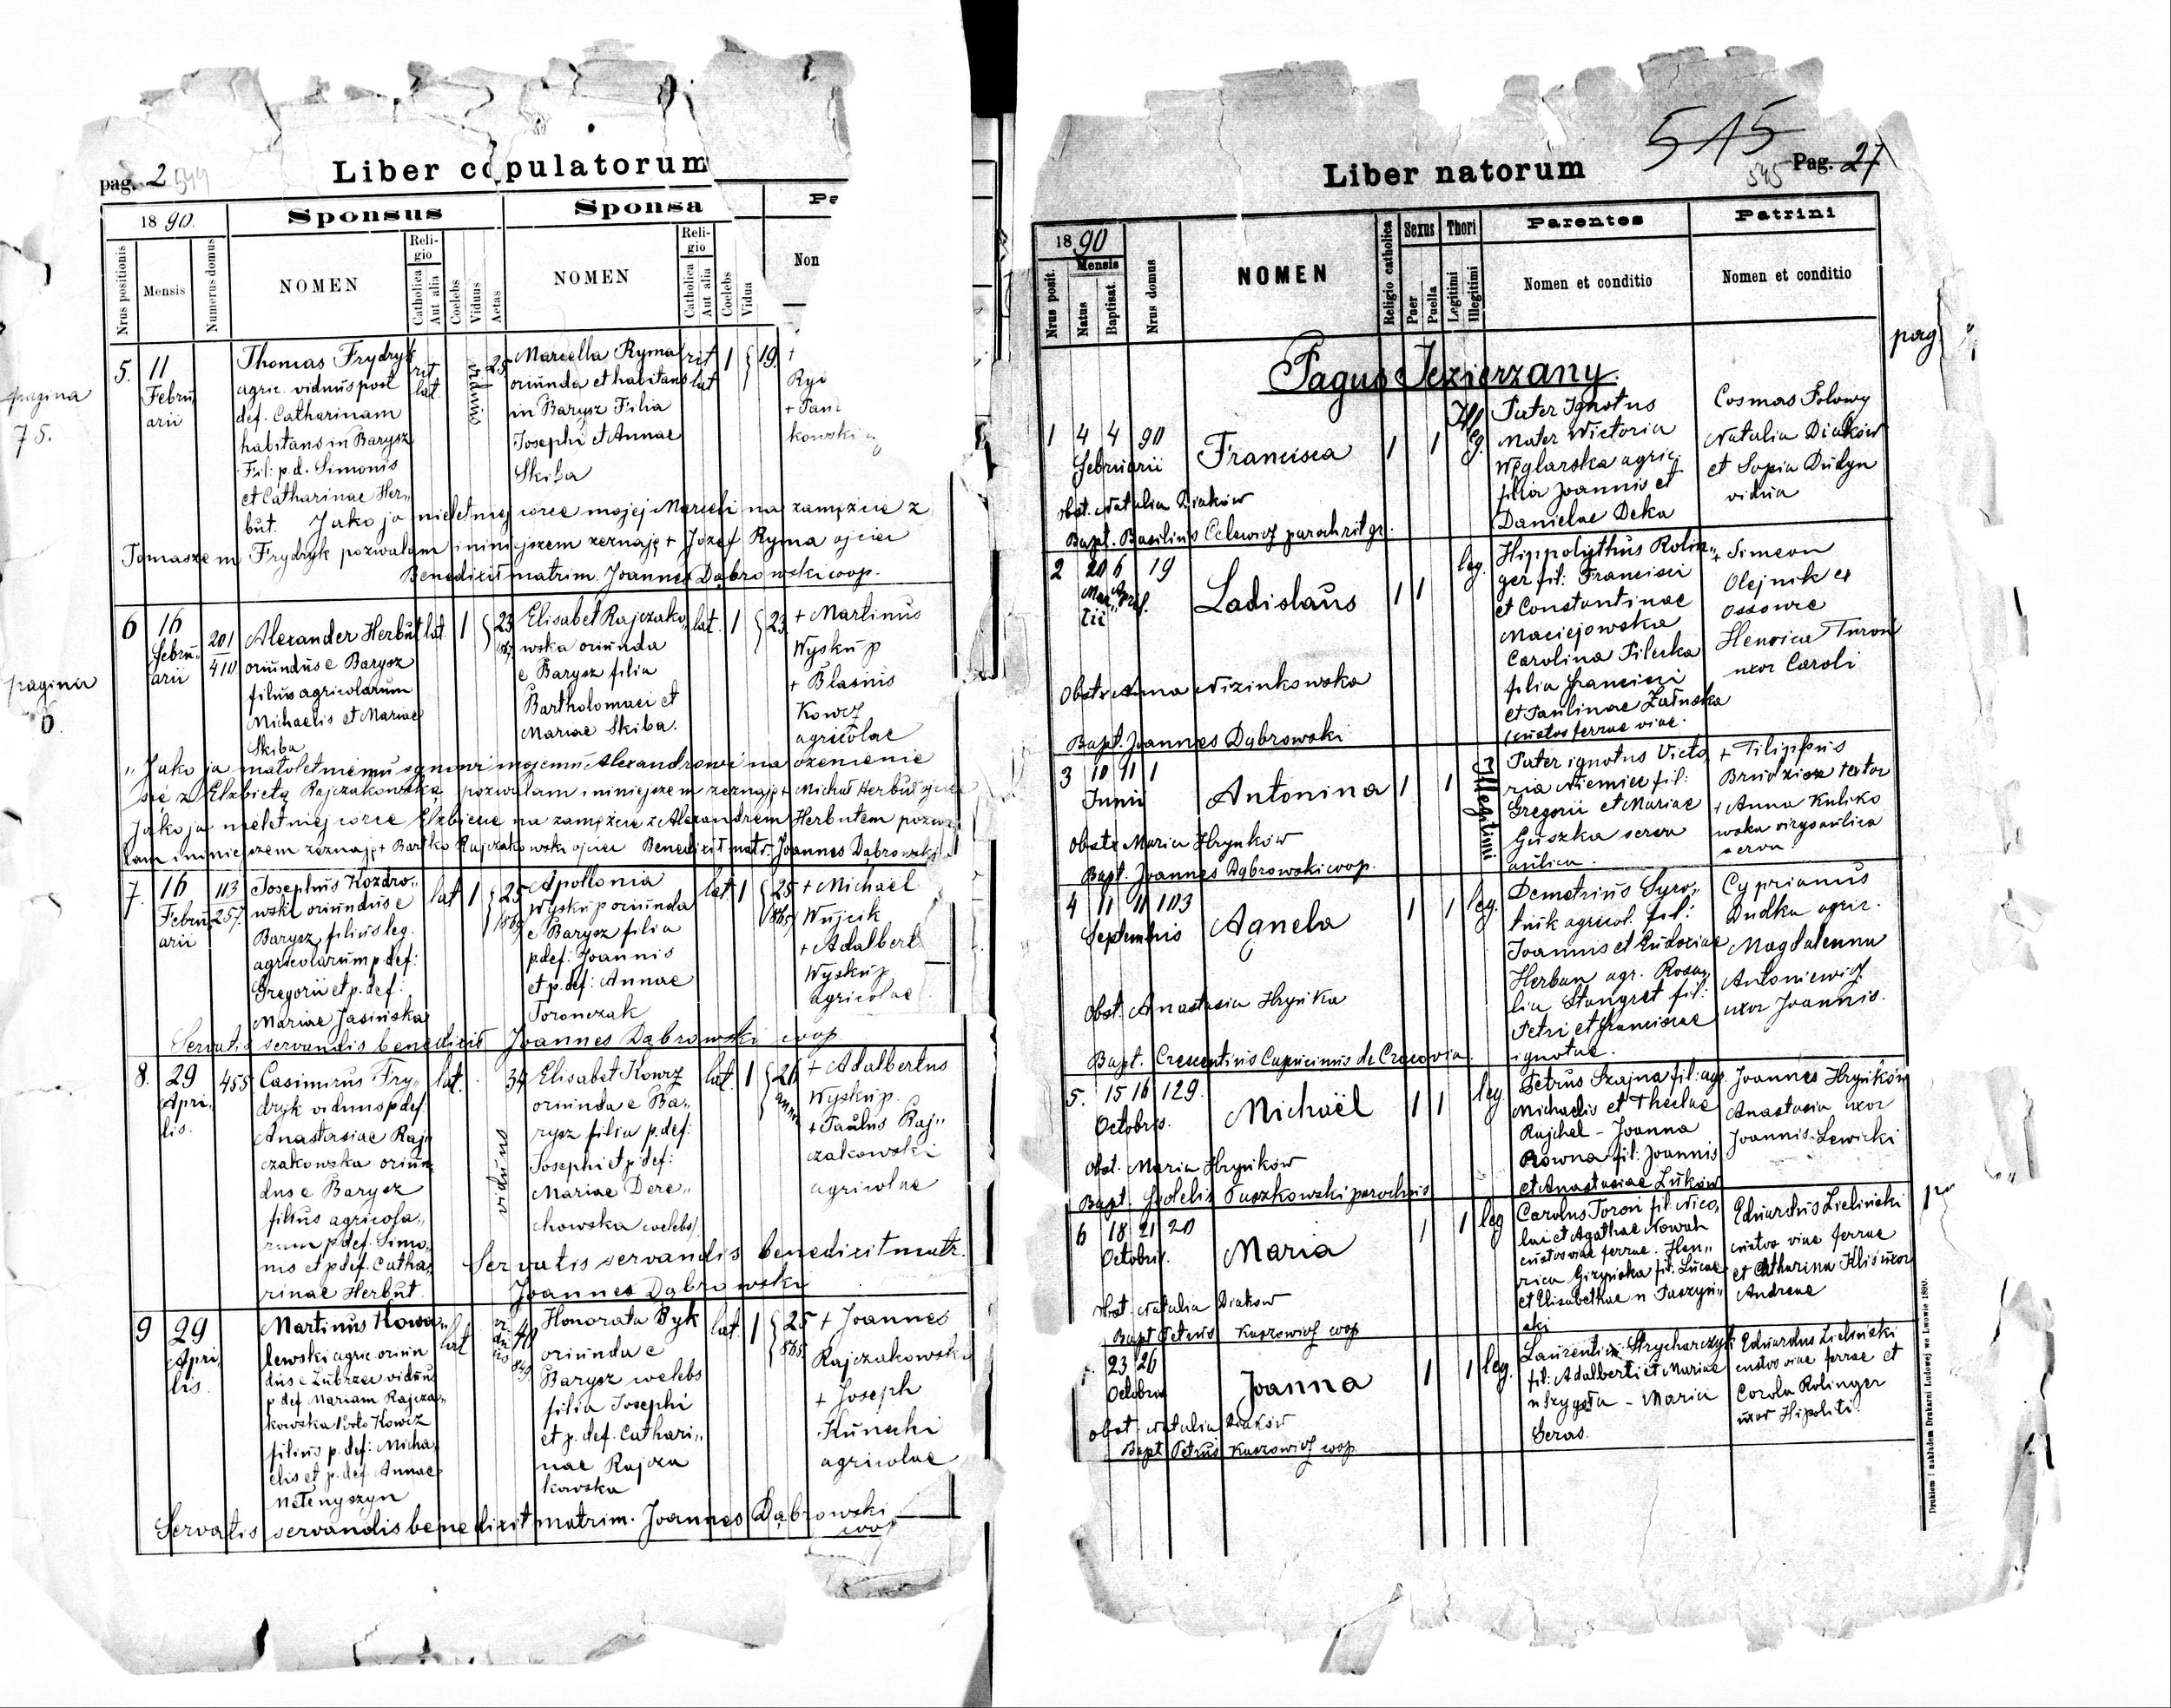 pag. 2 544
Liber copulatorum
1890.
Sponsus
Sponsa
Nrus positionis
Mensis
Numerus domus
NOMEN
Religio
Catholica
Aut alia
Coelebs
Viduus
Aetas
NOMEN
Religio
Catholica
Aut alia
Coelebs
Vidua
Non
pagina
75.
5. 11 Februarii
Thomas Frydryk
agric. viduus post
def. Catharinam
habitans in Barysz
Fil: p.d. Simonis
et Catharinae Her-
but.
rit lat. viduus 25
Marcella Ryma
oriunda et habitans
in Barysz Filia
Josephi et Annae
Skiba
rit lat 1 19.
+
kowski
Jako ja nieletniej córce mojej Marceli na zamęźcie z
Tomaszem Frydryk pozwalam i niniejszem zeznaję + Józef Ryma ojciec
Benedixit matrim. Joannes Dąbrowski coop.
pagina
6.
6 16 Februarii 201 410
Alexander Herbut
oriundus e Barysz
filius agricolarum
Michaelis et Mariae
Skiba
lat. 1 23
Elisabet Rajczako„
wska oriunda
e Barysz filia
Bartholomaei et
Mariae Skiba.
lat. 1 23
+ Martinus
Wyskup
+ Blasius
Kowcz
agricolae
„Jako ja małoletniemu synowi mojemu Alexandrowi na ożenienie
się z Elżbietą Rajczakowską pozwalam i niniejszem zeznaję + Michał Herbut ojciec
Jako ja nieletniej córce Elżbiecie na zamęźcie z Alexandrem Herbutem pozwa
lam i niniejszem zeznaję + Bartko Rajczakowski ojciec Benedixit matr. Joannes Dąbrowski
7. 16 Februarii 113 257.
Josephus Kozdro„
wski oriundus e
Barysz filius leg.
agricolarum p. def:
Gregorii et p. def:
Mariae Jasińska
lat 1 25
Apollonia
Wyskup oriunda
e Barysz filia
p. def: Joannis
et p. def: Annae
Toronczak
lat. 1 25 1865
+ Michaël
Wujcik
+ Adalbert
Wyskup
agricolae
Servatis servandis benedixit Joannes Dąbrowski coop.
8. 29 Aprilis. 455
Casimirus Fry„
dryk viduus p def.
Anastasiae Raj„
czakowska oriun„
dus e Barysz
filius agricola„
rum p. def. Simo„
nis et p def. Catha„
rinae Herbut.
lat. viduus 34
Elisabet Kowcz
oriunda e Ba„
rysz filia p. def:
Josephi et p def:
Mariae Dere„
chowska coelebs
lat. 1 26
+ Adalbertus
Wyskup.
+ Paulus Raj„
czakowski
agricolae
Servatis servandis benedixit matr.
Joannes Dąbrowski
9 29 Aprilis.
Martinus Kowa„
lewski agric. oriun
dus e Zubrzec viduus
p def Mariam Rajcza„
kowska 1voto Kowcz
filius p. def: Micha„
elis et p. def. Annae
Netenyszyn
lat viduus 40 849.
Honorata Byk
oriunda e
Barysz coelebs
filia Josephi
et p. def. Cathari„
nae Rajcza
kowska
lat. 1 25 865
+ Joannes
Rajczakowski
+ Joseph
Kunecki
agricolae
Servatis servandis benedixit matrim. Joannes Dąbrowski
coop
515
545
Pag. 27
Liber natorum
1890
Nrus posit.
Mensis
Natus
Baptisat.
Nrus domus
NOMEN
Religio catholica
Sexus
Puer
Puella
Thori
Legitimi
Illegitimi
Parentes
Nomen et conditio
Patrini
Nomen et conditio
pag.
Pagus Jezierzany.
1 4 4 90
Februarii
Francisca
1 1 Illeg.
Pater Ignotus
Mater Victoria
Węglarska agric.
filia Joannis et
Danielae Deka
Cosmas Polowy
Natalia Diaków
et Sopia Dudyn
vidua
obst. Natalia Diaków
Bapt. Basilius Celewicz paroch rit gr.
2 20 6 19
Martii April.
Ladislaus
1 1 leg.
Hippolythus Rolin„
ger fil: Francisci
et Constantinae
Maciejowska
Carolina Pilecka
filia Francisci
et Paulinae Załuska
custos ferrae viae.
+ Simeon
Olejnik ex
Ossowce
Henrica Turoń
uxor Caroli
Obstr. Anna Nizinkowska
Bapt. Joannes Dąbrowski
3 10 11 1
Junii
Antonina
1 1 Illegitimi
Pater ignotus Victo
ria Niemiec fil:
Gregorii et Mariae
Guszka serva
aulica.
+ Filippus
Brudzisz textor
+ Anna Kuliko
wska virgo aulica
serva.
Obstr. Maria Hryńków
Bapt. Joannes Dąbrowski coop.
4 11 11 103
Septembris
Agnela
1 1 leg.
Demetrius Syro„
tiuk agricol. fil:
Joannis et Eudoxiae
Herban agr. Rosa„
lia Stangret fil:
Petri et Franciscae
ignotae.
Cyprianus
Dudka agric.
Magdalenna
Antoniewicz
uxor Joannis.
Obst. Anastasia Hryńka
Bapt. Crescentius Capucinus de Cracovia.
5. 15 16 129.
Octobris.
Michaël
1 1 leg.
Petrus Szajna fil: agr.
Michaelis et Theclae
Rajchel – Joanna
Rowna fil: Joannis
et Anastasiae Luków
Joannes Hryńków
Anastasia uxor
Joannis Lewicki
Obst. Maria Hryńków
Bapt. Fidelis Paszkowski parochus
6 18 21 20
Octobris.
Maria
1 1 leg
Carolus Toroń fil: Nico„
lai et Agathae Nowak
custos viae ferrae. Hen„
rica Gizyńska fil: Lucae
et Elisabethae n Paszyń„
ski
Eduardus Zieliński
custos viae ferrae
et Catharina Klis uxor
Andreae
obst. Natalia Diaków
Bapt Petrus Kuszowicz coop
23 26
Octobris
Joanna
1 1 leg.
Laurentius Strycharczyk
fil: Adalberti et Mariae
n Szygoła – Maria
Geras.
Eduardus Zieliński
custos viae ferrae et
Corola Rolinger
uxor Hipoliti.
obst. Natalia Diaków
Bapt Petrus Kuszowicz coop
Drukiem i nakładem Drukarni Ludowej we Lwowie 1890.